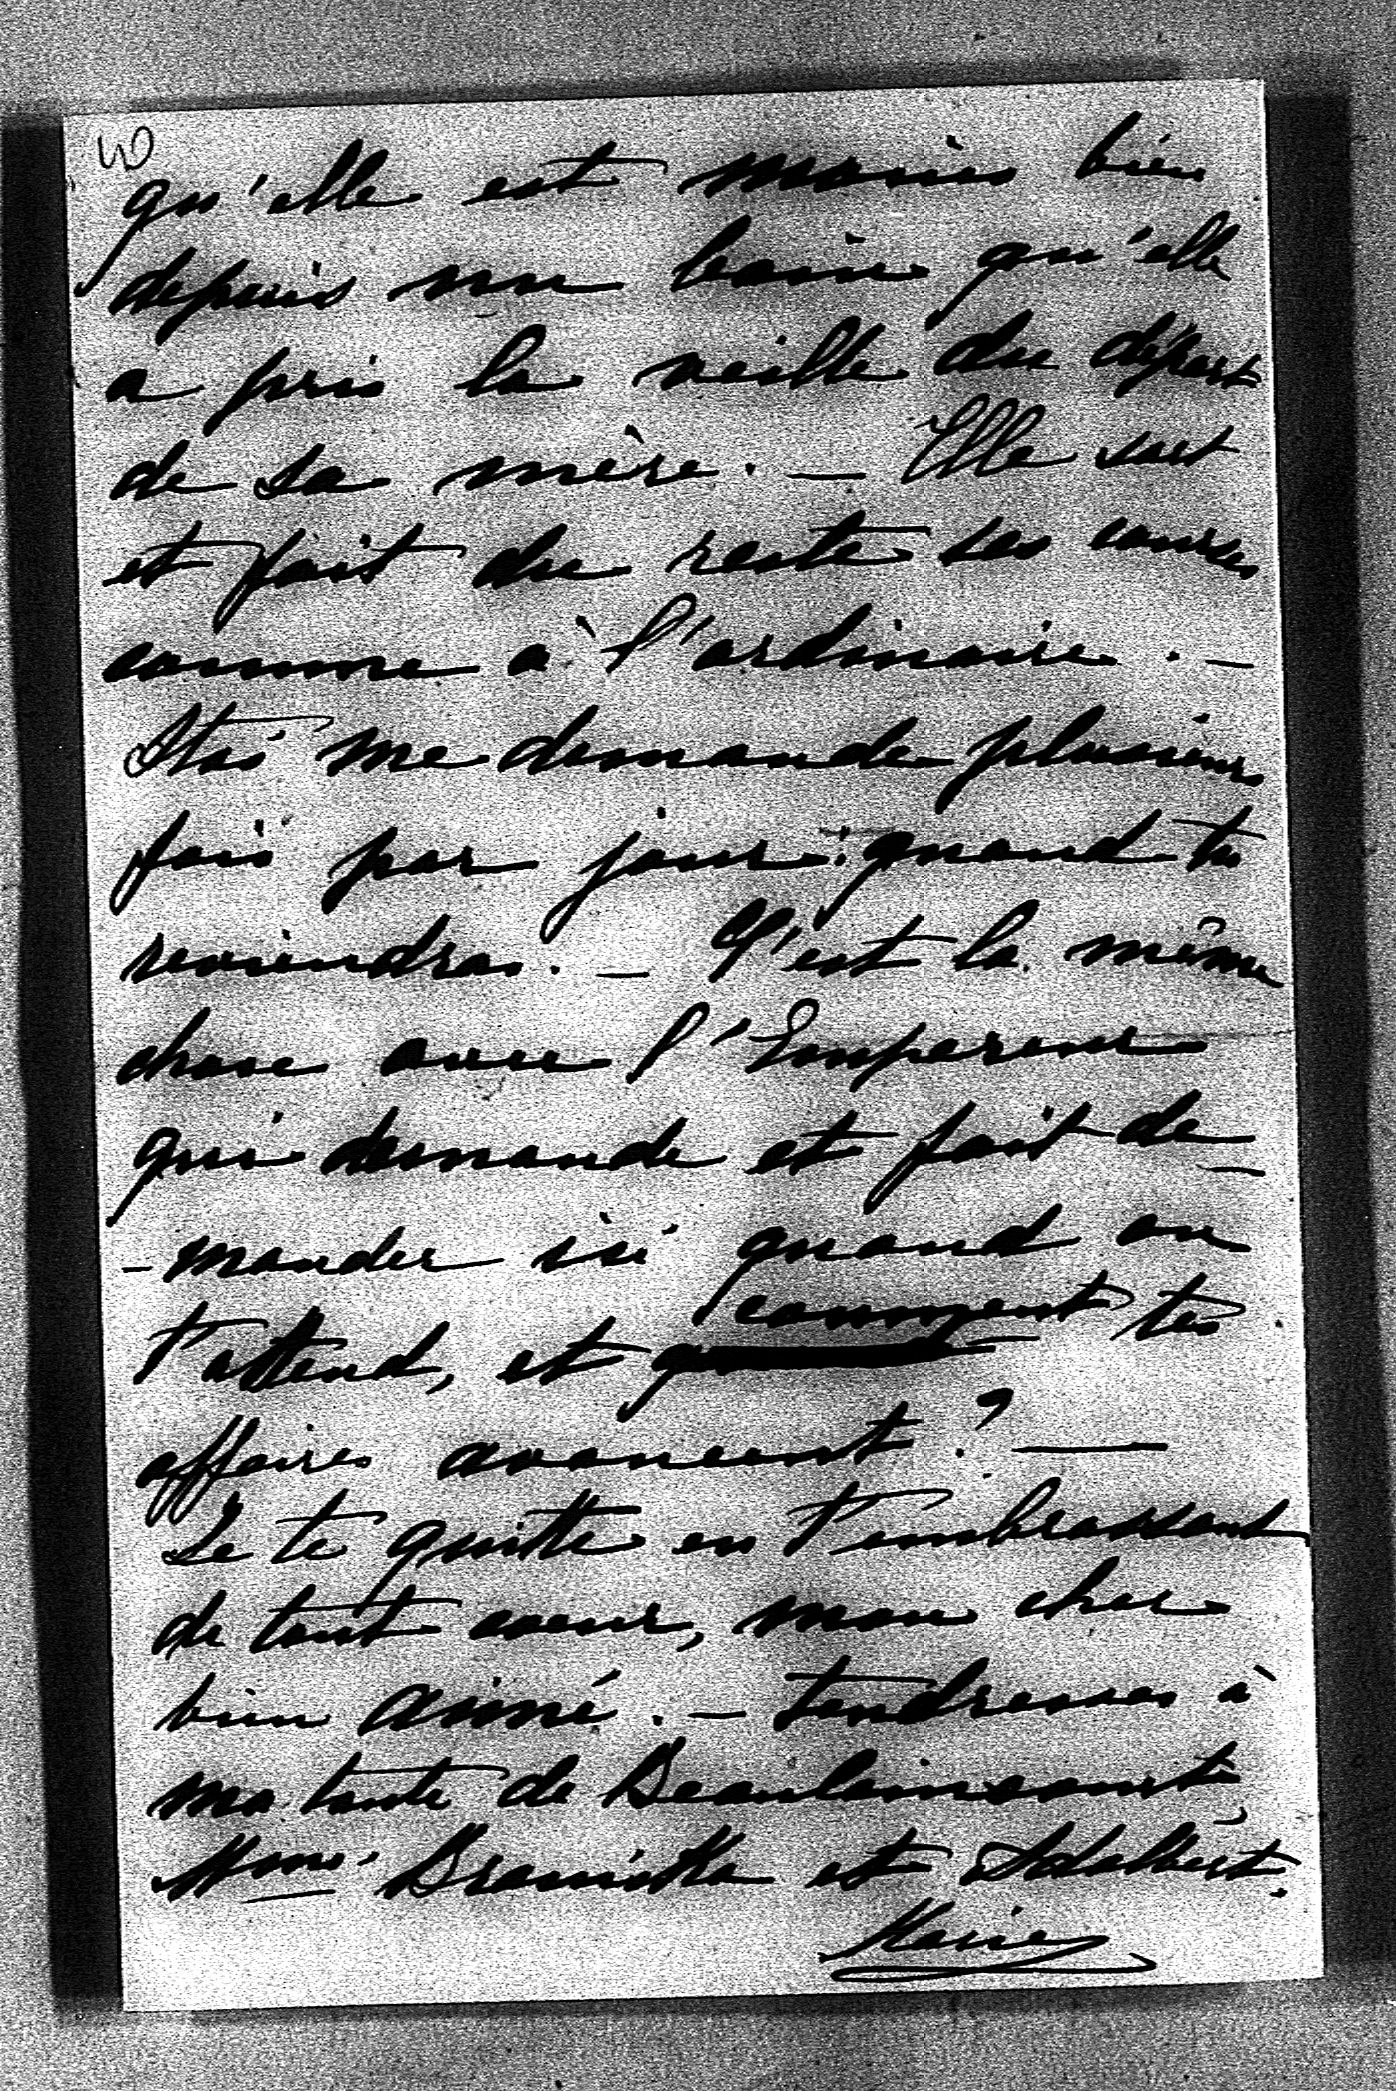 3)
qu'elle est moins bien
depuis un bain qu'elle
a pris la veille du départ
de sa mère. — Elle sort
et fait du reste ses courses
comme à l'ordinaire. —
Stas me demande plusieurs
fois par jour: quand tu
reviendras. — C'est la même
chose avec l'Empereur
qui demande et fait de-
-mander ici quand on
t'attend, et comment tes
affaires avancent? —
Je te quitte en t'embrassant
de tout coeur, mon cher
bien aimé. — tendresses à
ma tante de Beaulaincourt,
Mme. Branicka et Adalbert.
Marie